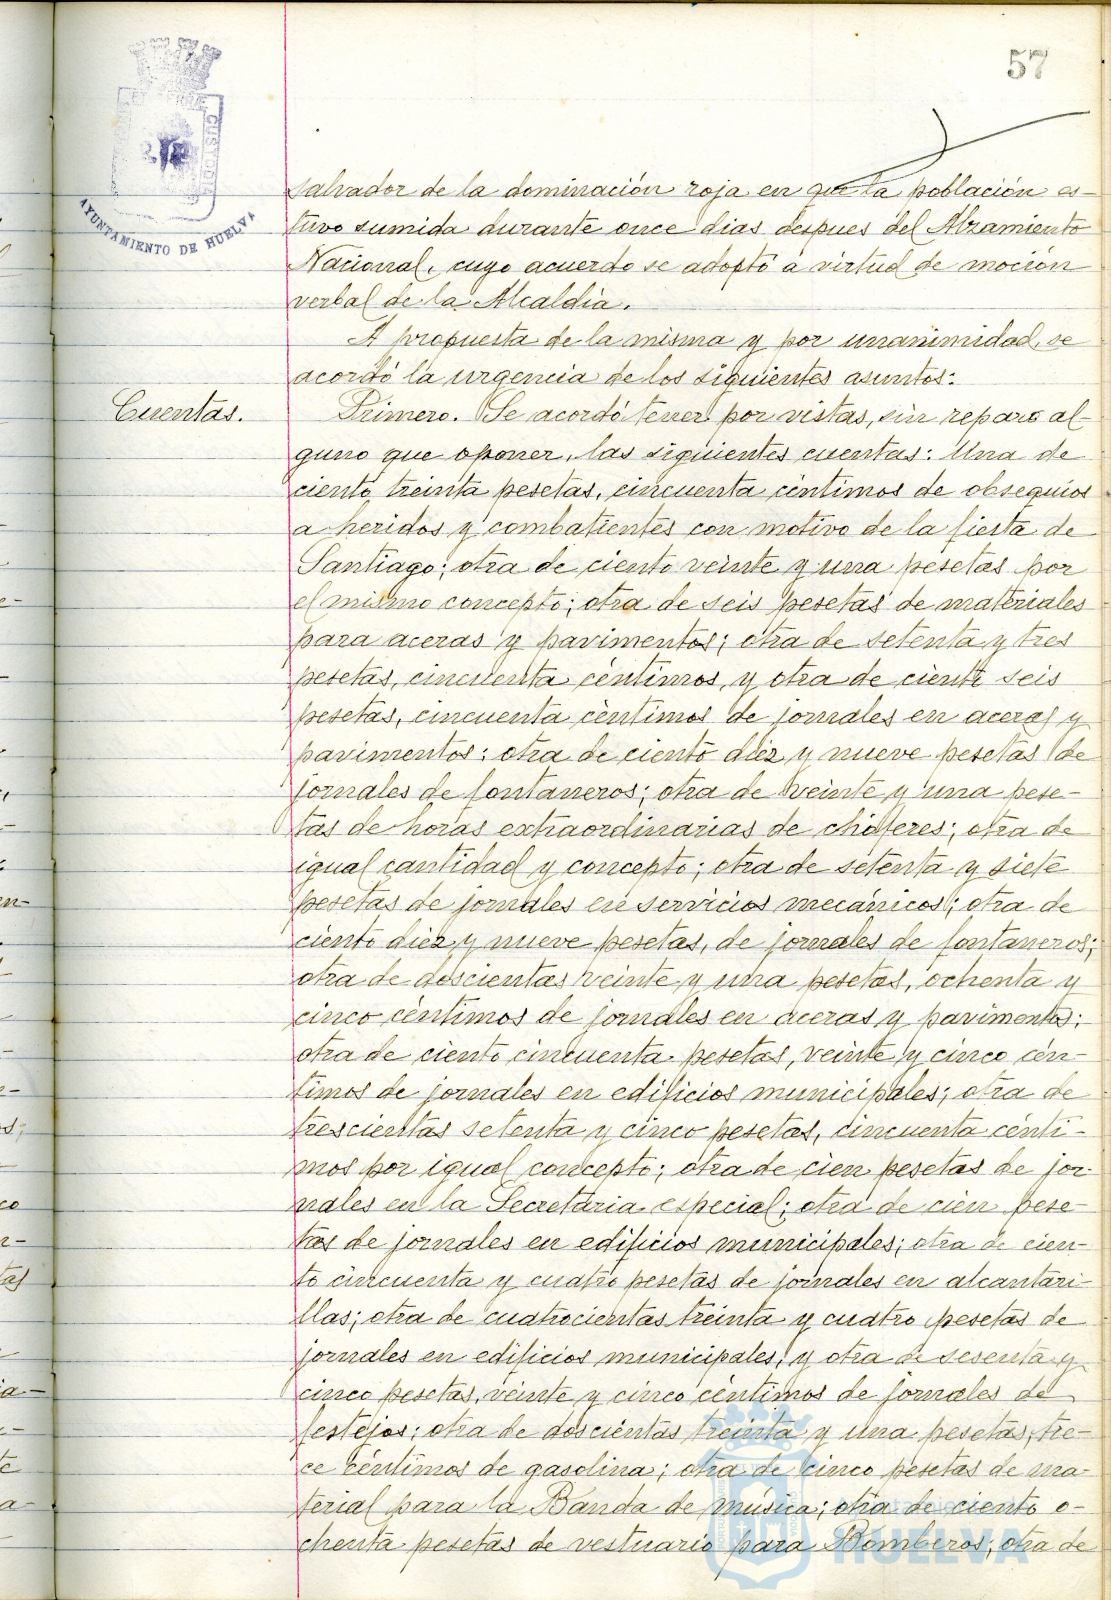 57
AYUNTAMIENTO DE HUELVA
salvador de la dominación roja en que la población es-
tuvo sumida durante once dias despues del Alzamiento
Nacional, cuyo acuerdo se adoptó a virtud de moción
verbal de la Alcaldia.
A propuesta de la misma y por unanimidad, se
acordó la urgencia de los siguientes asuntos:
Cuentas.
Primero. Se acordó tener por vistas, sin reparo al-
guno que oponer, las siguientes cuentas: Una de
ciento treinta pesetas, cincuenta céntimos de obsequios
a heridos y combatientes con motivo de la fiesta de
Santiago; otra de ciento veinte y una pesetas por
el mismo concepto; otra de seis pesetas de materiales
para aceras y pavimentos; otra de setenta y tres
pesetas, cincuenta céntimos, y otra de ciento seis
pesetas, cincuenta céntimos de jornales en aceras y
pavimentos; otra de ciento diez y nueve pesetas de
jornales de fontaneros; otra de veinte y una pese-
tas de horas extraordinarias de choferes; otra de
igual cantidad y concepto; otra de setenta y siete
pesetas de jornales en servicios mecánicos; otra de
ciento diez y nueve pesetas, de jornales de fontaneros;
otra de doscientas veinte y una pesetas, ochenta y
cinco céntimos de jornales en aceras y pavimentos;
otra de ciento cincuenta pesetas, veinte y cinco cén-
timos de jornales en edificios municipales; otra de
trescientas setenta y cinco pesetas, cincuenta cénti-
mos por igual concepto; otra de cien pesetas de jor-
nales en la Secretaria especial; otra de cien pese-
tas de jornales en edificios municipales; otra de cien-
to cincuenta y cuatro pesetas de jornales en alcantari-
llas; otra de cuatrocientas treinta y cuatro pesetas de
jornales en edificios municipales; y otra de sesenta y
cinco pesetas, veinte y cinco céntimos de jornales de
festejos; otra de doscientas treinta y una pesetas, tre-
ce céntimos de gasolina; otra de cinco pesetas de ma-
terial para la Banda de música; otra de ciento o-
chenta pesetas de vestuario para Bomberos; otra de
HUELVA